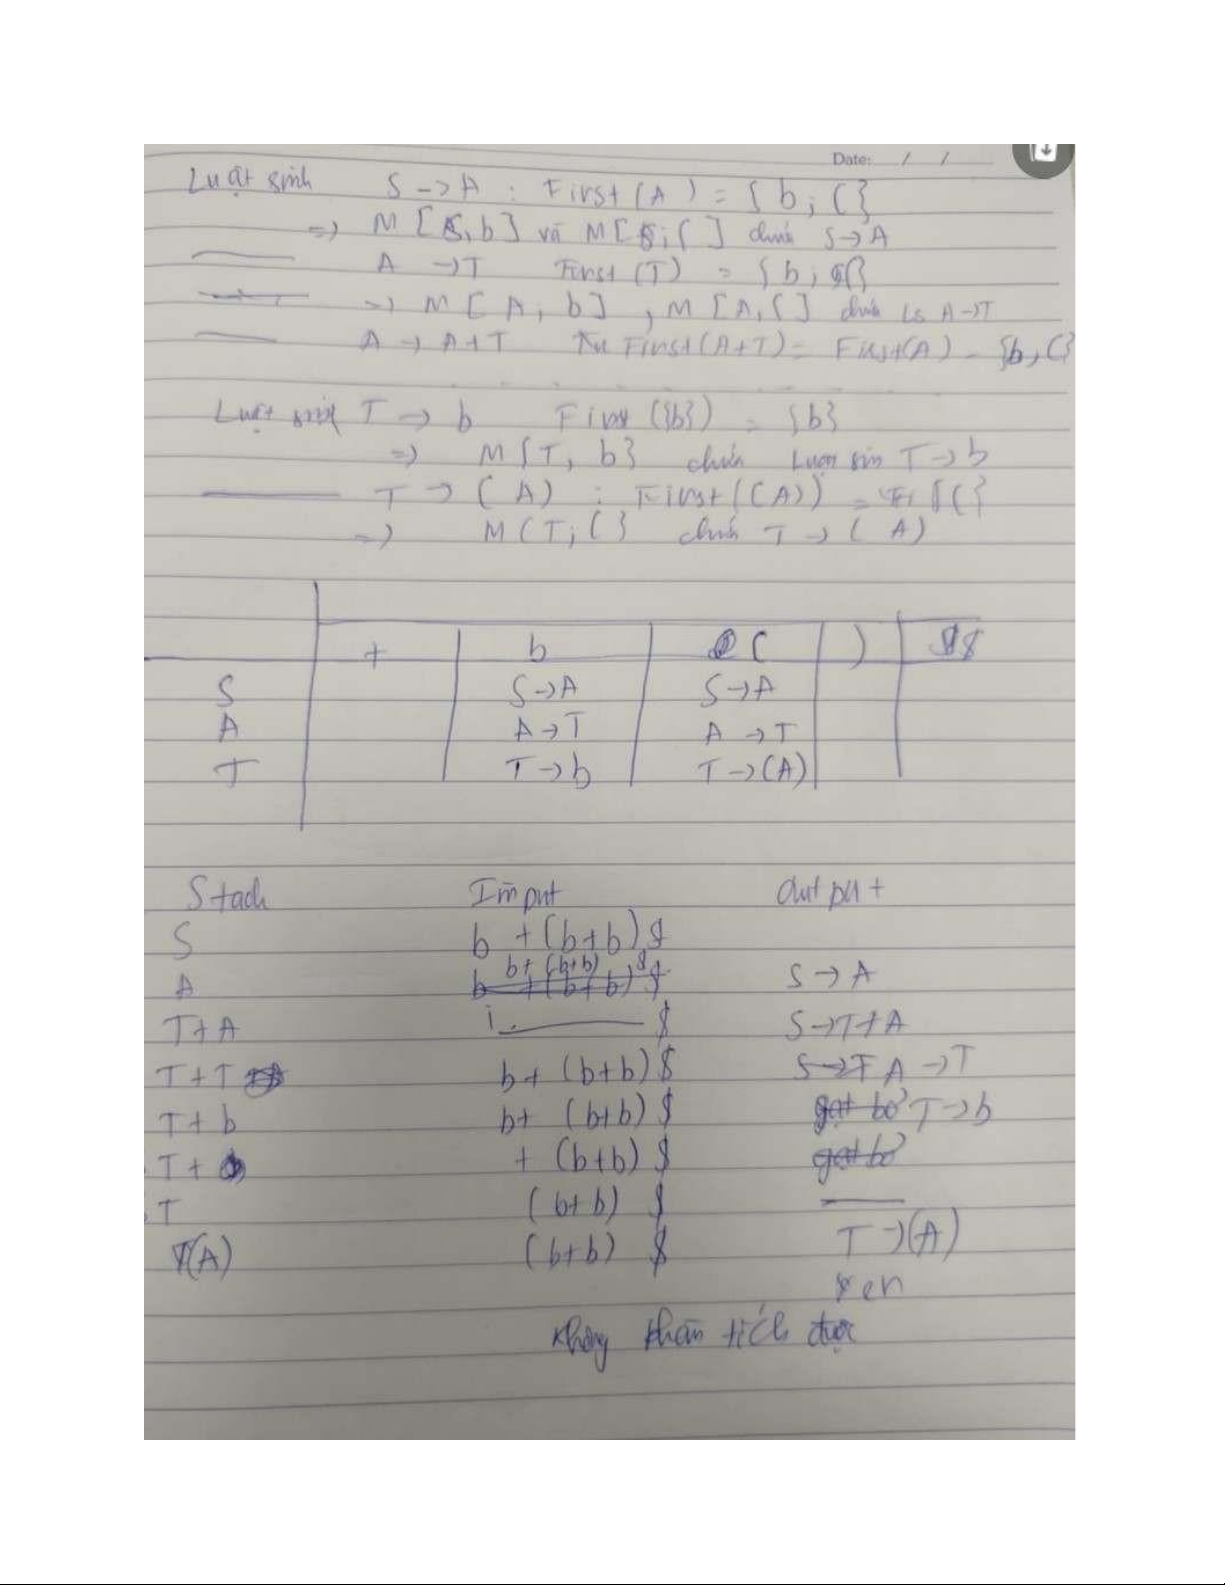 Date: / /
Luật sinh S → A : First (A) = { b ; ( }
=> M [S, b] và M [S ; ( ] chứa S → A
A → T First (T) = { b ; ( }
=> M [ A, b ] , M [ A, ( ] chứa LS A → T
A → A+T First (A+T) = First(A) = {b, (}
Luật sinh T → b First ({b}) = {b}
=> M { T, b } chứa T → b
T → ( A ) : First ((A)) = { ( }
=> M ( T ; ( } chứa T → ( A )
+ b ( ) $
S S → A S → A
A A → T A → T
T T → b T → (A)
Stach Imput Output
S b + (b+b) $
A b + (b+b) $ S → A
T+A $ S → T+A
T + T b + (b+b) $ A → T
T + b b + (b+b) $ T → b
T + + (b+b) $
T (b+b) $
T(A) (b+b) $ T → (A)
Không phân tích được